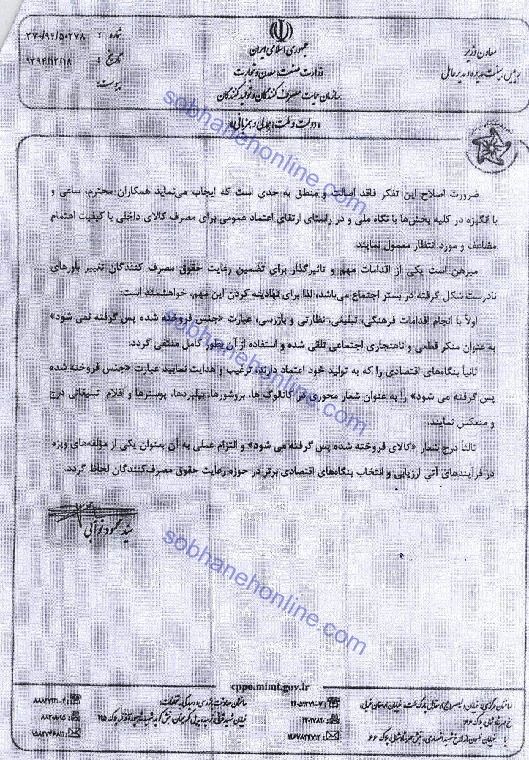 جمهوری اسلامی ایران
وزارت صنعت، معدن و تجارت
سازمان حمایت مصرف کنندگان و تولید کنندگان
معاون وزیر
رئیس هیئت مدیره و مدیرعامل
شماره :
تاریخ :
پیوست :
«دولت و ملت، همدلی و همزبانی»
ضرورت اصلاح این تفکر فاقد اصالت و منطق به حدی است که ایجاب می‌نماید همکاران محترم، ساعی و
با انگیزه در کلیه بخش‌ها با نگاه ملی و در راستای ارتقای اعتماد عمومی برای مصرف کالای داخلی با کیفیت اهتمام
مضاعف و مورد انتظار معمول نمایند.
مبرهن است یکی از اقدامات مهم و تاثیرگذار برای تضمین رعایت حقوق مصرف کنندگان تغییر باورهای
نادرست شکل گرفته در بستر اجتماع می‌باشد، لذا برای نهادینه کردن این مهم، خواهشمند است:
اولاً با انجام اقدامات فرهنگی، تبلیغی، نظارتی و بازرسی، عبارت «جنس فروخته شده پس گرفته نمی شود»
به عنوان منکر قطعی و ناهنجاری اجتماعی تلقی شده و استفاده از آن بطور کامل منتفی گردد.
ثانیاً بنگاه‌های اقتصادی را که به تولید خود اعتماد دارند، ترغیب و هدایت نمایید عبارت «جنس فروخته شده
پس گرفته می شود» را به عنوان شعار محوری در کاتالوگ ها، بروشورها، بیلبوردها، پوسترها و اقلام تبلیغاتی درج
و منعکس نمایند.
ثالثاً درج شعار «کالای فروخته شده پس گرفته می شود» و التزام عملی به آن بعنوان یکی از مؤلفه‌های ویژه
در فرآیندهای آتی ارزیابی و انتخاب بنگاه‌های اقتصادی برتر در حوزه رعایت حقوق مصرف‌کنندگان لحاظ گردد.
سید محمود نوابی
sobhanehonline.com
sobhanehonline.com
sobhanehonline.com
cppo.mimt.gov.ir